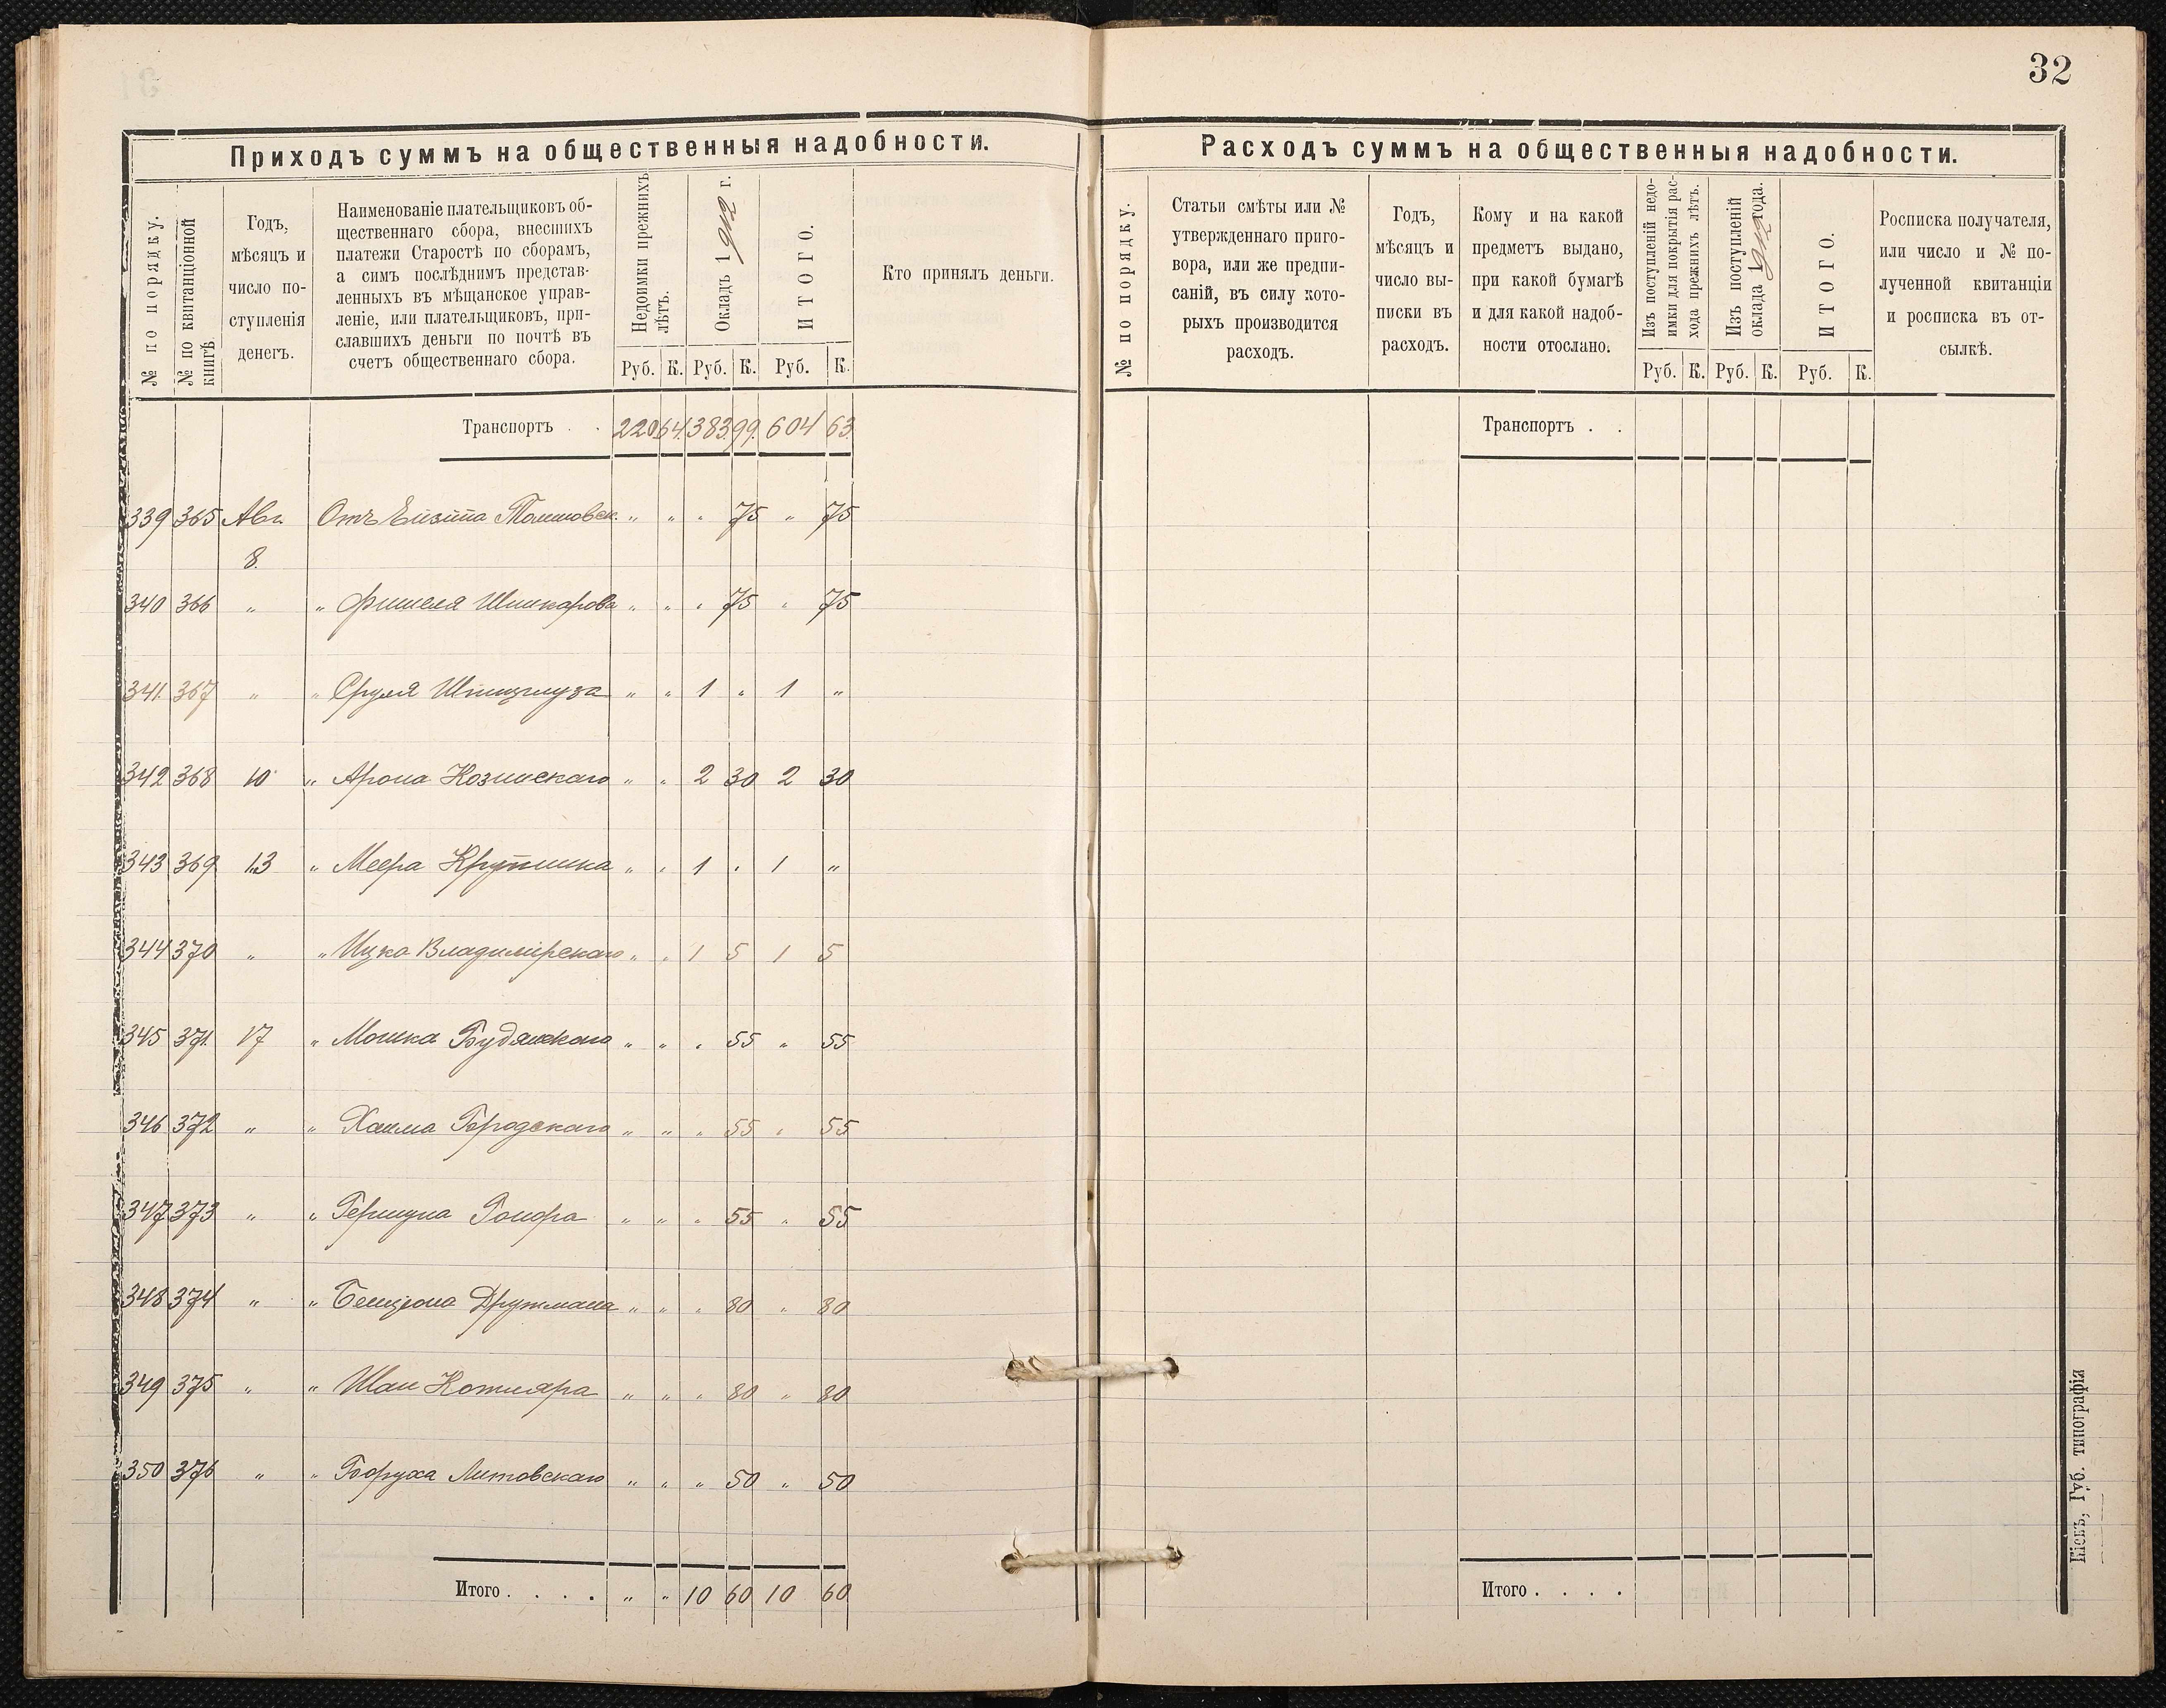 32
Приходъ суммъ на общественныя надобности.
№ по порядку.
№ по квитанціонной
книгѣ
Годъ,
мѣсяцъ и
число по-
ступленія
денегъ.
Наименованіе плательщиковъ об-
щественнаго сбора, внесшихъ
платежи Старостѣ по сборамъ,
а симъ послѣднимъ представ-
ленныхъ въ мѣщанское управ-
леніе, или плательщиковъ, при-
славшихъ деньги по почтѣ въ
счетъ общественнаго сбора.
Недоимки прежнихъ
лѣтъ.
Окладъ 1912 г.
ИТОГО.
Руб. К. Руб. К. Руб. К.
Кто принялъ деньги.
Транспортъ . . 220 64 383 99 604 63
339 365 Авг. Отъ " " " 75 " 75
8.
340 366 " " Фишеля " " " 75 " 75
341 367 " " Сруля " " 1 " 1 "
342 368 10 " Арона Козинскаго " " 2 30 2 30
343 369 13 " Меера Крупника " " 1 " 1 "
344 370 " " Ицко Владимірскаго " " 1 5 1 5
345 371 17 " Мошка Будянскаго " " " 55 " 55
346 372 " " Хаима Городскаго " " " 55 " 55
347 373 " " Гершуна " " " 55 " 55
348 374 " " Бенціона Дружмана " " " 80 " 80
349 375 " " Шаи Котляра " " " 80 " 80
350 376 " " Боруха Литовскаго " " " 50 " 50
Итого . . . . " " 10 60 10 60
Расходъ суммъ на общественныя надобности.
№ по порядку.
Статьи смѣты или №
утвержденнаго приго-
вора, или же предпи-
саній, въ силу кото-
рыхъ производится
расходъ.
Годъ,
мѣсяцъ и
число вы-
писки въ
расходъ.
Кому и на какой
предметъ выдано,
при какой бумагѣ
и для какой надоб-
ности отослано.
Изъ поступленій недо-
имки для покрытія рас-
хода прежнихъ лѣтъ.
Изъ поступленій
оклада 1912 года.
ИТОГО.
Руб. К. Руб. К. Руб. К.
Росписка получателя,
или число и № по-
лученной квитанціи
и росписка въ от-
сылкѣ.
Транспортъ . .
Итого . . . .
Кіевъ, Губ. типографія